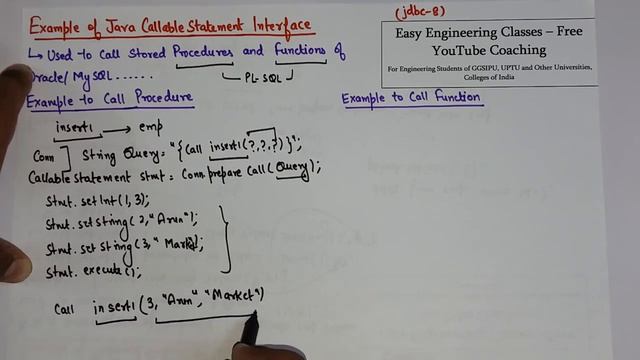 Example of Java Callable Statement Interface
(jdbc-8)
Easy Engineering Classes – Free
YouTube Coaching
For Engineering Students of GGSIPU, UPTU and Other Universities,
Colleges of India
↳ Used to Call Stored Procedures and functions of
Oracle/ MySQL ......
PL-SQL
Example to Call Procedure
insert1 → emp
Conn] String Query = "{Call insert1(?,?,?)}";
Callable statement stmt = Conn.prepare Call(Query);
Stmt.setInt(1,3);
Stmt.setString(2,"Arun");
Stmt.set string(3,"Market");
Stmt.execute();
Call insert1(3,"Arun","Market")
Example to Call Function